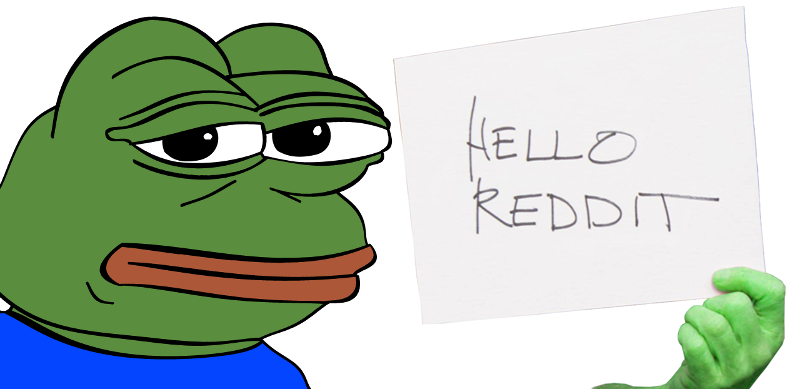 HELLO
REDDIT